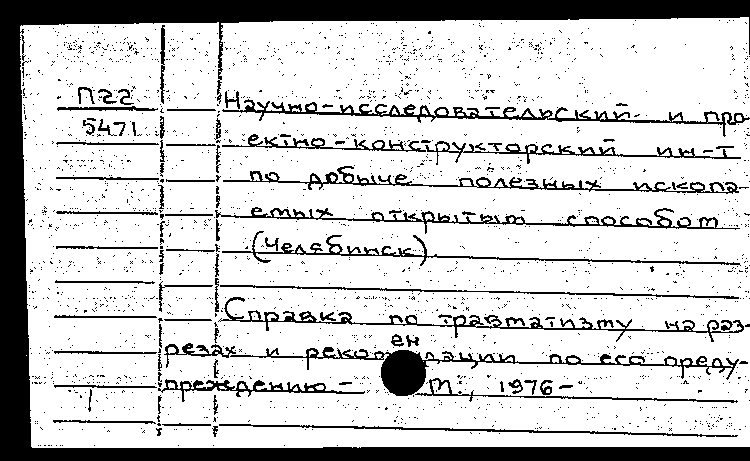 П22
5471
Научно-исследовательский и про
ектно-конструкторский ин-т
по добыче полезных ископа
емых открытым способом
(Челябинск)
Справка по травматизму на раз-
резах и рекомендации по его преду-
преждению - М., 1976-